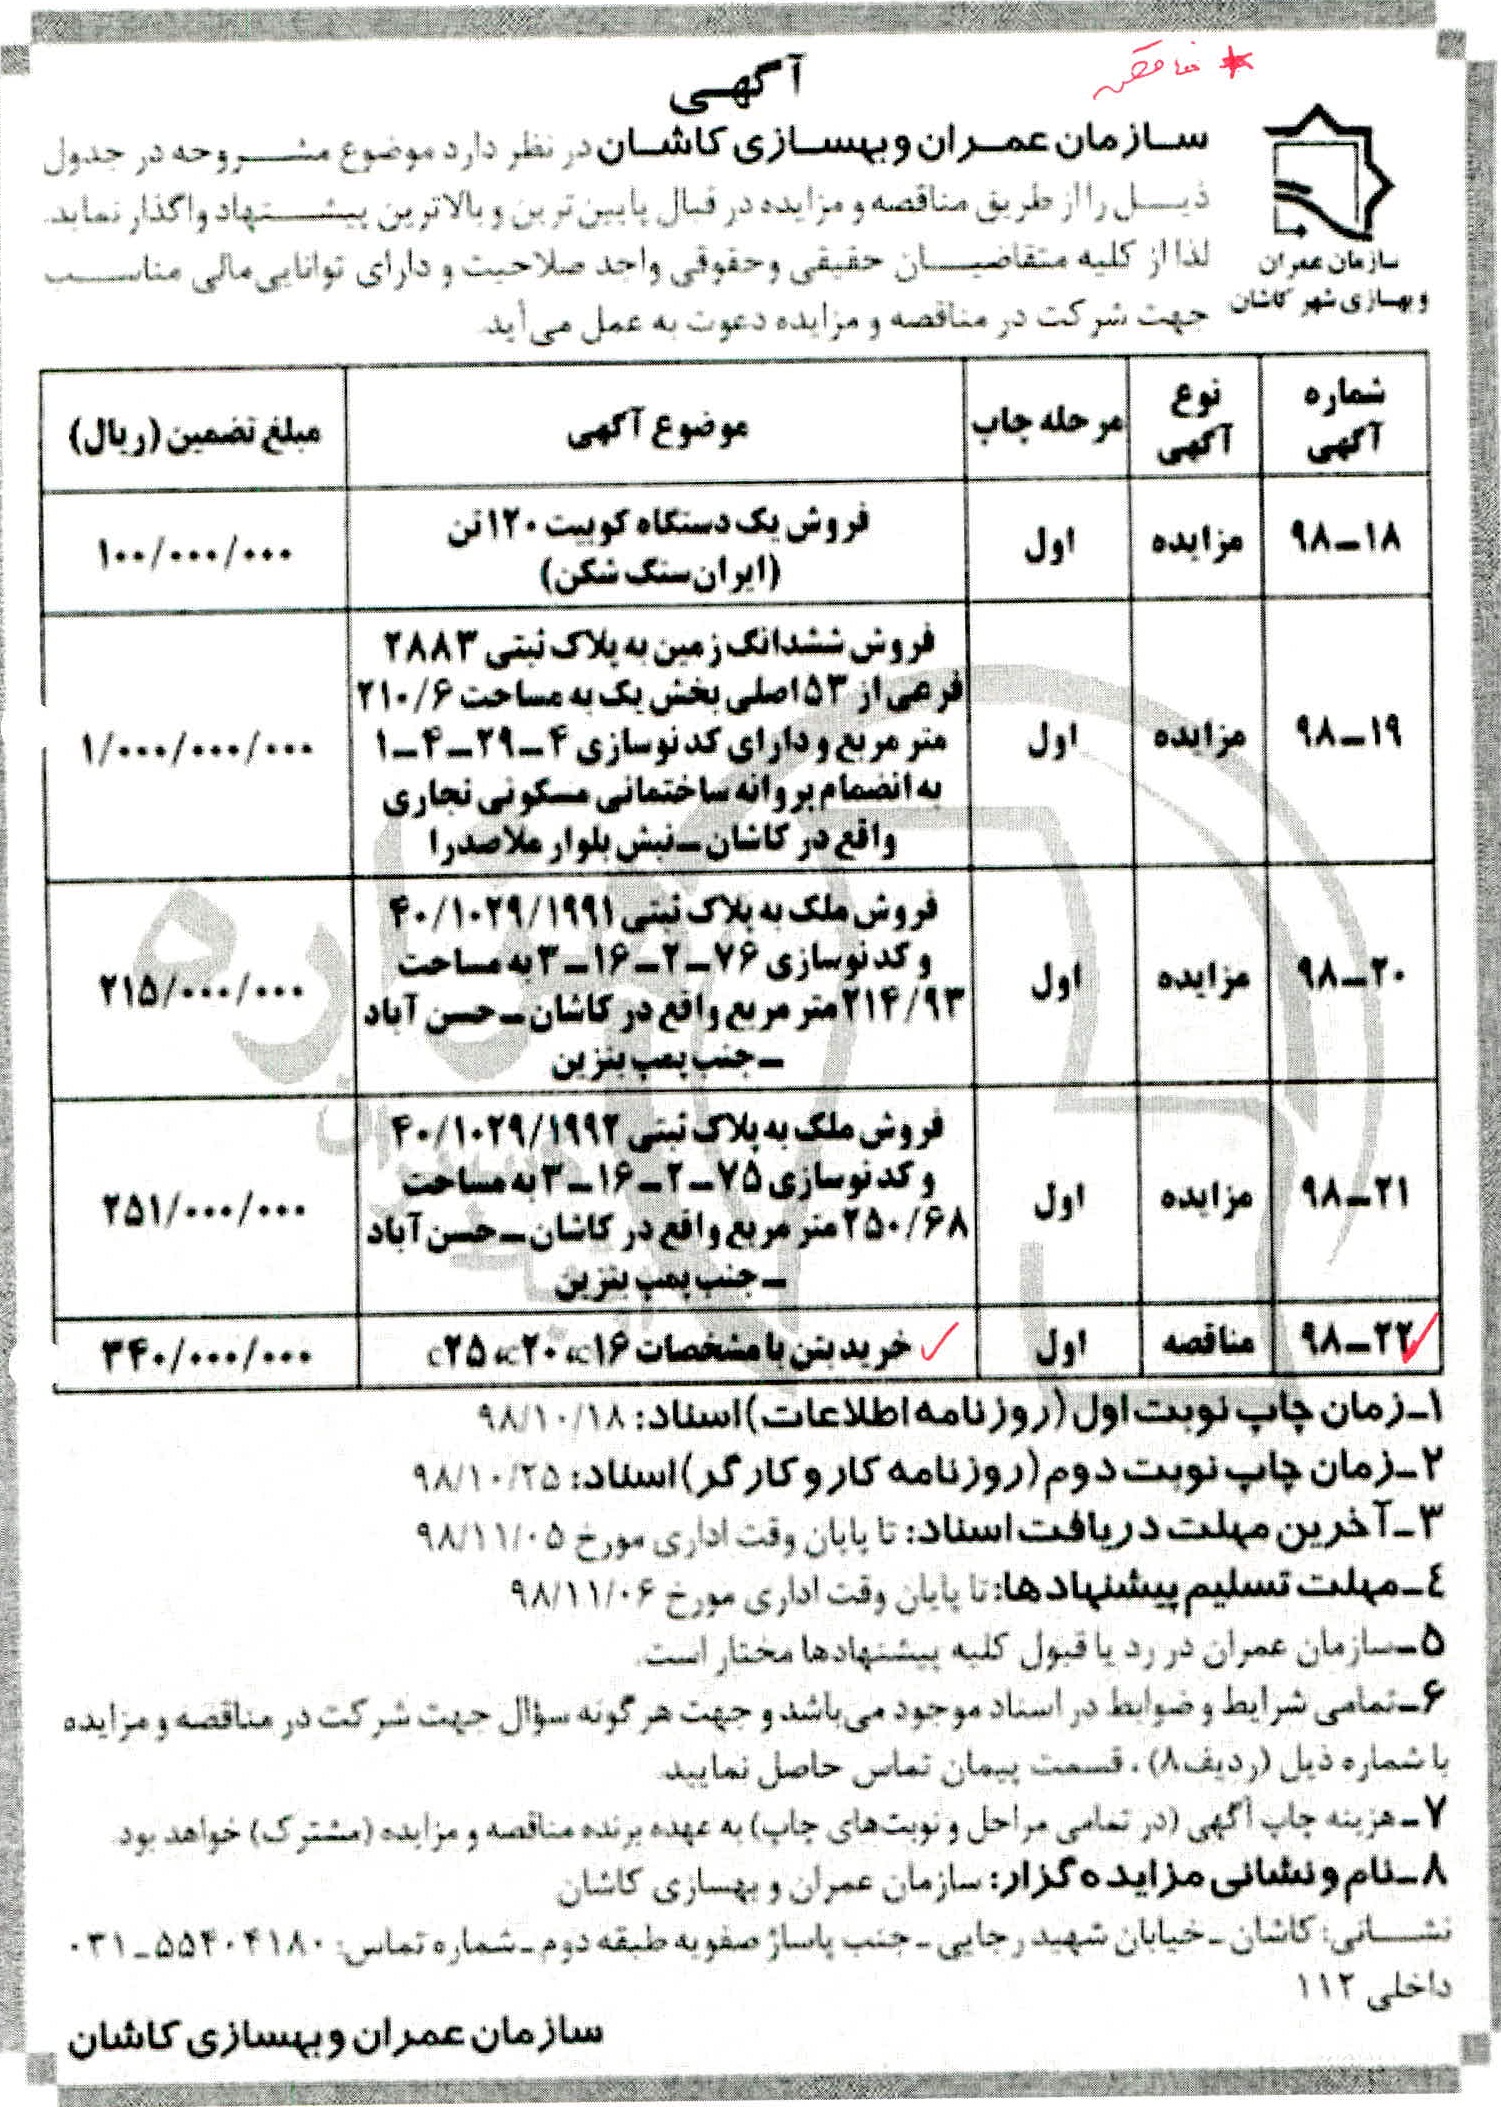 آگهی
سازمان عمران و بهسازی کاشان در نظر دارد موضوع مشروحه در جدول
ذیل را از طریق مناقصه و مزایده در قبال پایین‌ترین و بالاترین پیشنهاد واگذار نماید.
لذا از کلیه متقاضیان حقیقی و حقوقی واجد صلاحیت و دارای توانایی مالی مناسب
جهت شرکت در مناقصه و مزایده دعوت به عمل می‌آید.
سازمان عمران
و بهسازی شهر کاشان
شماره آگهی | نوع آگهی | مرحله چاپ | موضوع آگهی | مبلغ تضمین (ریال)
۹۸-۱۸ | مزایده | اول | فروش یک دستگاه کوبیت ۱۲۰ تن | ۱۰۰/۰۰۰/۰۰۰
(ایران سنگ شکن)
فروش ششدانگ زمین به پلاک ثبتی ۲۸۸۳
فرعی از ۵۳ اصلی بخش یک به مساحت ۲۱۰/۶
۹۸-۱۹ | مزایده | اول | متر مربع و دارای کد نوسازی ۴-۲۹-۴-۱ | ۱/۰۰۰/۰۰۰/۰۰۰
به انضمام پروانه ساختمانی مسکونی تجاری
واقع در کاشان-نبش بلوار ملاصدرا
فروش ملک به پلاک ثبتی ۴۰/۱۰۲۹/۱۹۹۱
و کد نوسازی ۷۶-۲-۱۶-۳ به مساحت
۹۸-۲۰ | مزایده | اول | ۲۱۴/۹۳ متر مربع واقع در کاشان-حسن آباد | ۲۱۵/۰۰۰/۰۰۰
-جنب پمپ بنزین
فروش ملک به پلاک ثبتی ۴۰/۱۰۲۹/۱۹۹۲
و کد نوسازی ۷۵-۲-۱۶-۳ به مساحت
۹۸-۲۱ | مزایده | اول | ۲۵۰/۶۸ متر مربع واقع در کاشان-حسن آباد | ۲۵۱/۰۰۰/۰۰۰
-جنب پمپ بنزین
۹۸-۲۲ | مناقصه | اول | خرید بتن با مشخصات c۱۶، c۲۰، c۲۵ | ۳۴۰/۰۰۰/۰۰۰
۱-زمان چاپ نوبت اول (روزنامه اطلاعات) اسناد: ۹۸/۱۰/۱۸
۲-زمان چاپ نوبت دوم (روزنامه کار و کارگر) اسناد: ۹۸/۱۰/۲۵
۳-آخرین مهلت دریافت اسناد: تا پایان وقت اداری مورخ ۹۸/۱۱/۰۵
۴-مهلت تسلیم پیشنهادها: تا پایان وقت اداری مورخ ۹۸/۱۱/۰۶
۵-سازمان عمران در رد یا قبول کلیه پیشنهادها مختار است.
۶-تمامی شرایط و ضوابط در اسناد موجود می‌باشد و جهت هر گونه سؤال جهت شرکت در مناقصه و مزایده
با شماره ذیل (ردیف ۸)، قسمت پیمان تماس حاصل نمایید.
۷-هزینه چاپ آگهی (در تمامی مراحل و نوبت‌های چاپ) به عهده برنده مناقصه و مزایده (مشترک) خواهد بود.
۸-نام و نشانی مزایده گزار: سازمان عمران و بهسازی کاشان
نشانی: کاشان-خیابان شهید رجایی-جنب پاساژ صفویه طبقه دوم-شماره تماس: ۵۵۴۰۴۱۸۰-۰۳۱
داخلی ۱۱۲
سازمان عمران و بهسازی کاشان